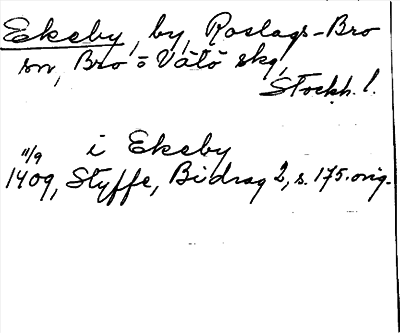 Ekeby, by, Roslags-Bro
sn, Bro o Vätö skg,
Stockh. l.
11/9 i Ekeby
1409, Styffe, Bidrag 2, s. 175. orig.